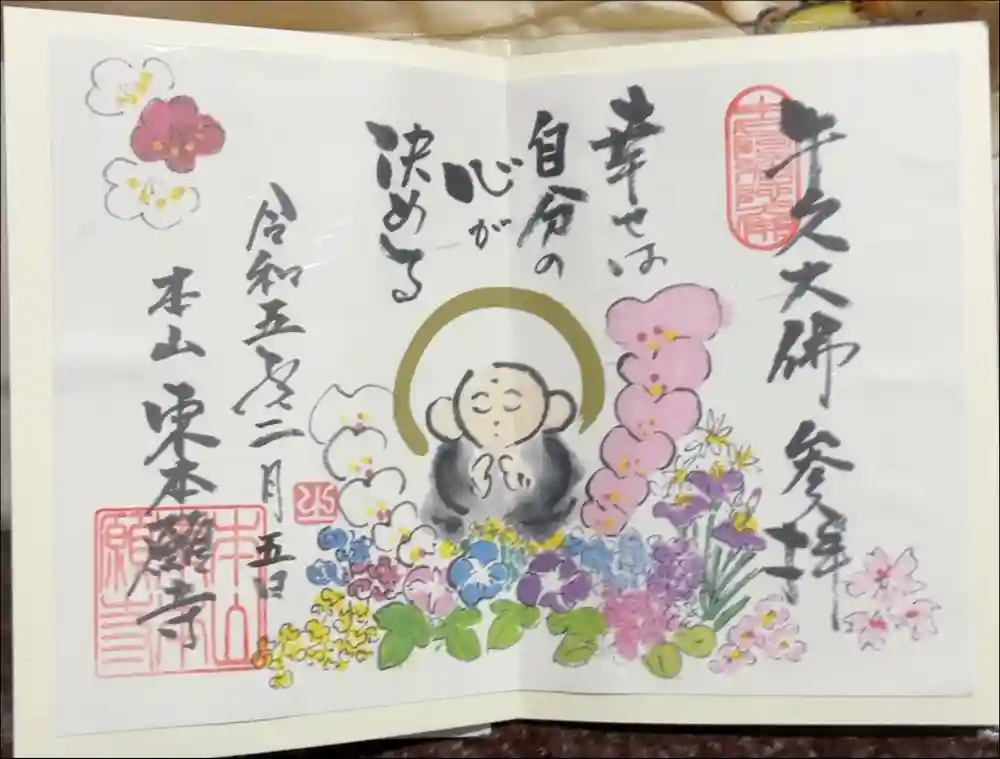 牛久大佛 参拝
幸せは
自分の
心が
決める
令和五年二月五日
本山 東本願寺
本山東本願寺